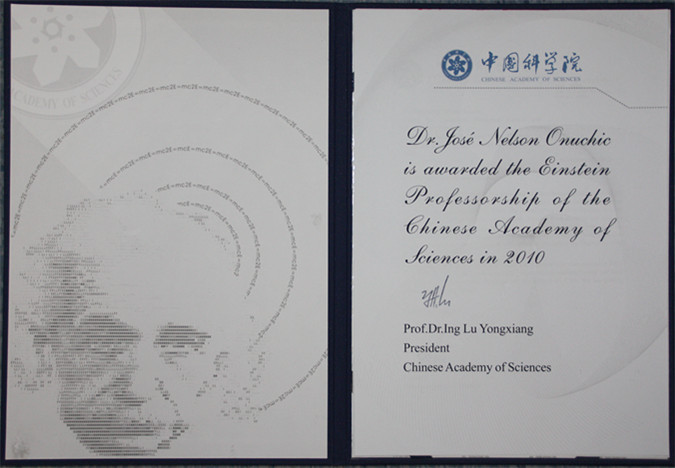 ACADEMY OF SCIENCES
中国科学院
CHINESE ACADEMY OF SCIENCES
Dr. José Nelson Onuchic
is awarded the Einstein
Professorship of the
Chinese Academy of
Sciences in 2010
Prof.Dr.Ing Lu Yongxiang
President
Chinese Academy of Sciences